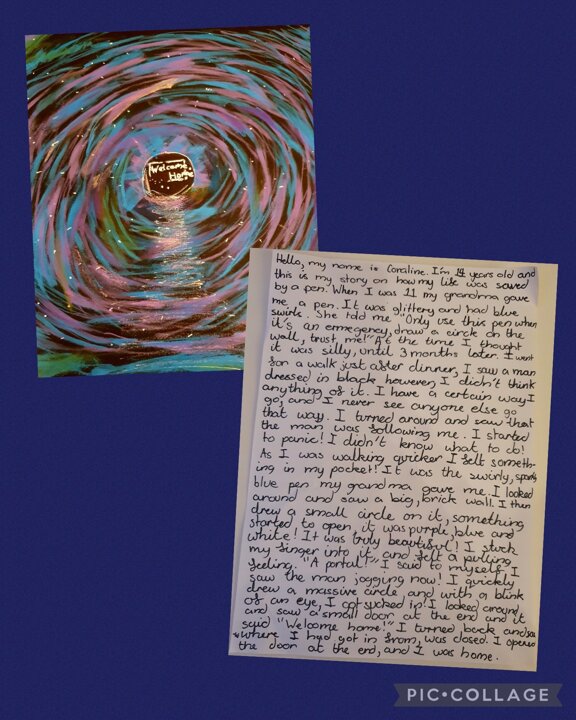 Welcome
Home
Hello, my name is Coraline. I'm 14 years old and
this is my story on how my life was saved
by a pen. When I was 11 my grandma gave
me a pen. It was glittery and had blue
swirls. She told me "Only use this pen when
it's an ermegency, draw a circle on the
wall, trust me!" At the time I thought
it was silly, until 3 months later. I went
for a walk just after dinner, I saw a man
dressed in black however, I didn't think
anything of it. I have a certain way I
go, and I never see anyone else go
that way. I turned around and saw that
the man was following me. I started
to panic! I didn't know what to do!
As I was walking quicker I felt someth-
ing in my pocket! It was the swirly, sparkly
blue pen my grandma gave me. I looked
around and saw a big, brick wall. I then
drew a small circle on it, something
started to open, it was purple, blue and
white! It was truly beautiful! I stuck
my finger into it and felt a pulling
feeling. "A portal!" I said to myself, I
saw the man jogging now! I quickly
drew a massive circle, and with a blink
of an eye, I got sucked in! I looked around,
and saw a small door at the end and it
said "Welcome home!" I turned back and saw
where I had got in from, was closed. I opened
the door at the end, and I was home.
PIC•COLLAGE